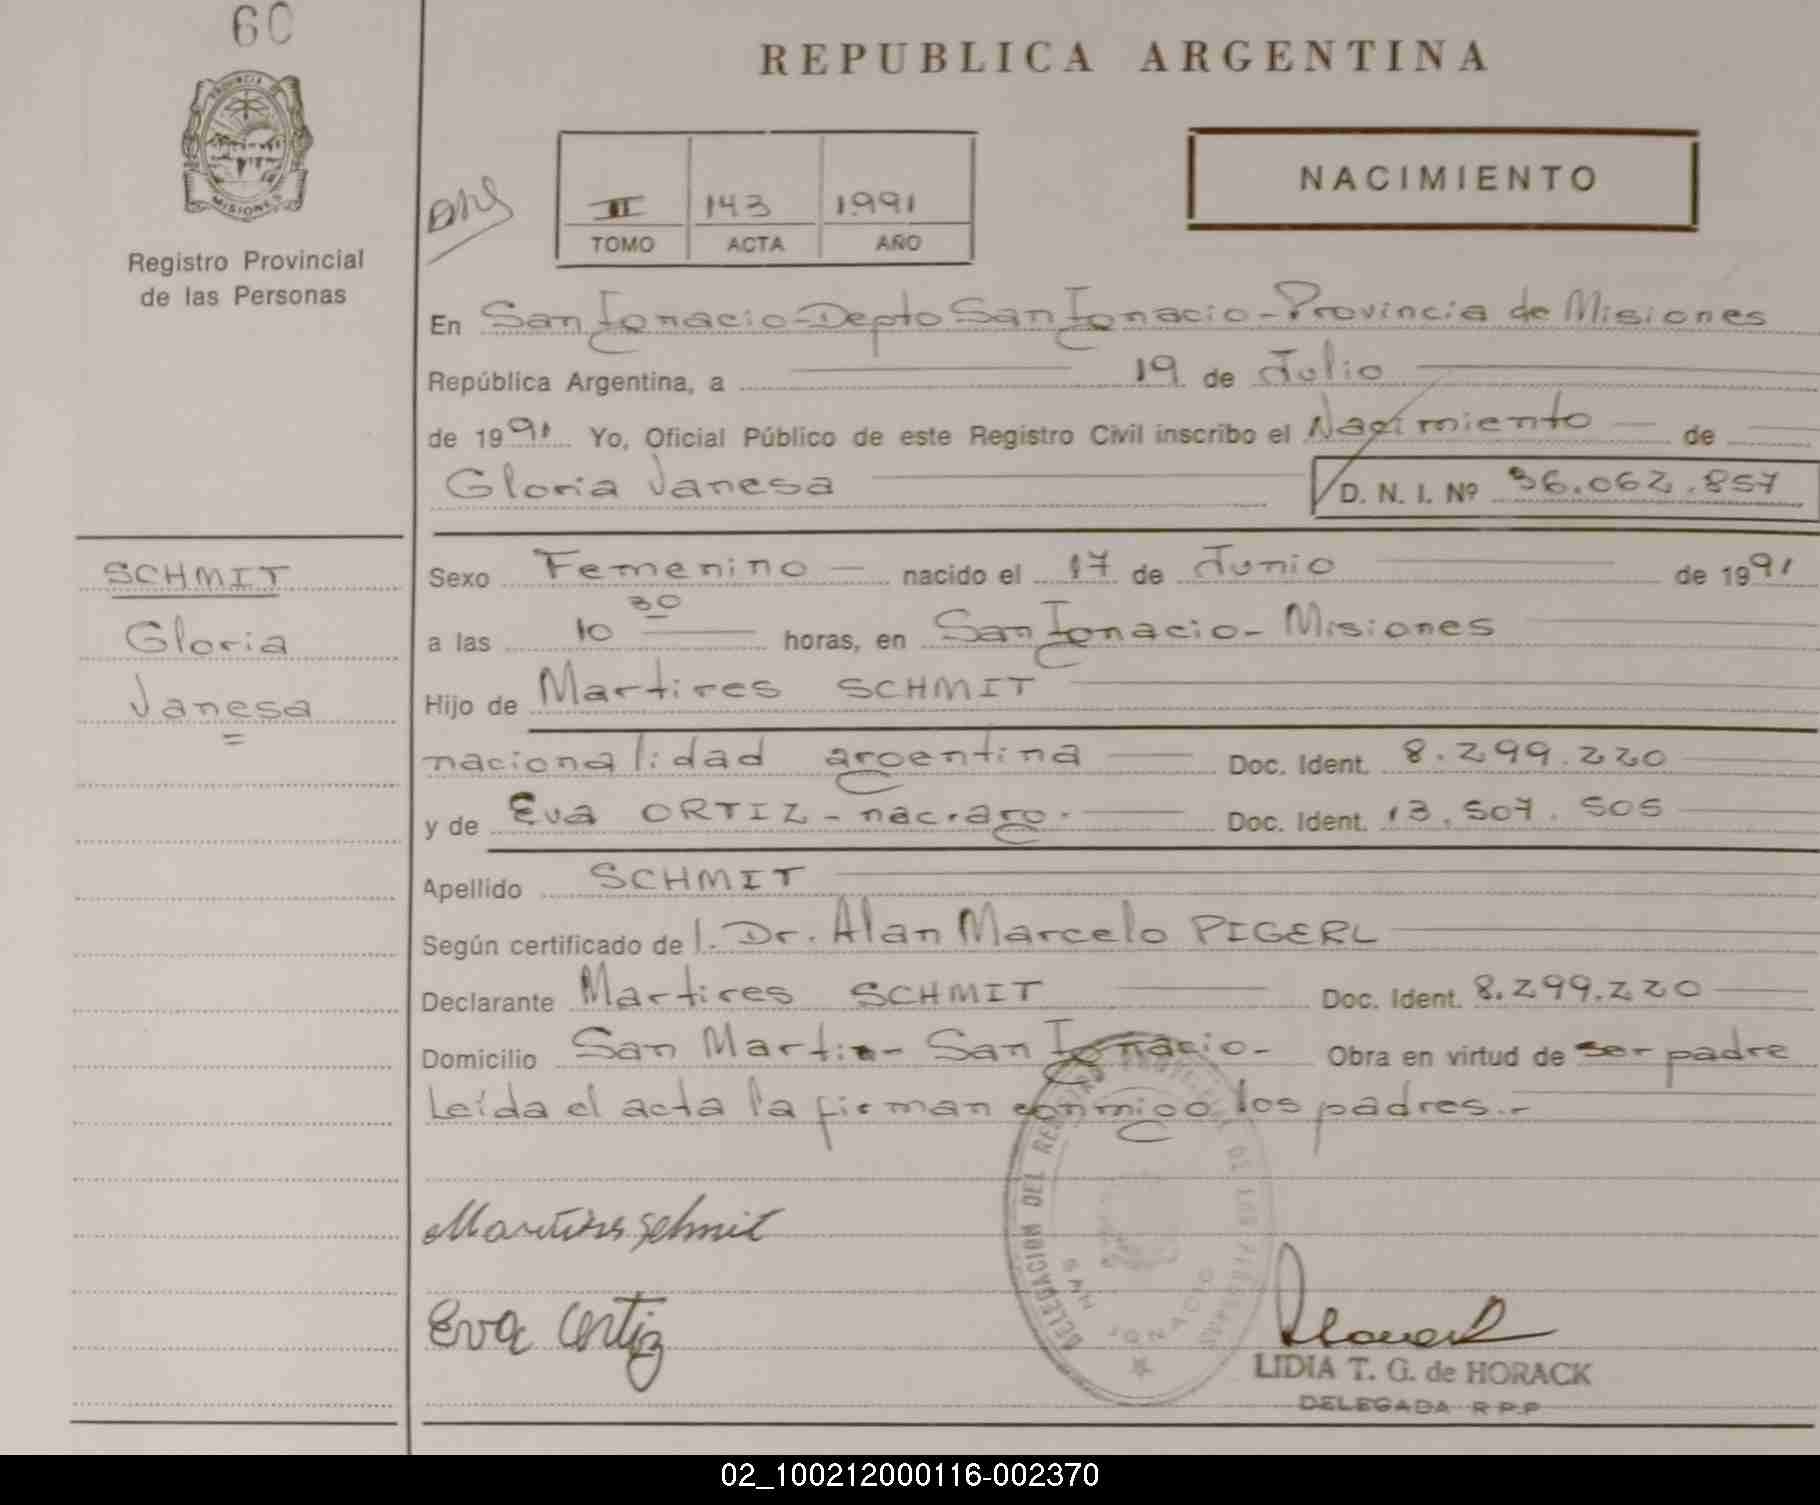 60
REPUBLICA ARGENTINA
PROVINCIA DE
MISIONES
Registro Provincial
de las Personas
II 143 1991
TOMO ACTA AÑO
NACIMIENTO
En San Ignacio - Depto San Ignacio - Provincia de Misiones
República Argentina, a 19 de Julio
de 1991 Yo, Oficial Público de este Registro Civil inscribo el Nacimiento de
Gloria Vanesa D. N. I. Nº 36.062.857
SCHMIT
Gloria
Vanesa
Sexo Femenino nacido el 17 de Junio de 1991
a las 10 30 horas, en San Ignacio - Misiones
Hijo de Martires SCHMIT
nacionalidad argentina Doc. Ident. 8.299.220
y de Eva ORTIZ - nac. arg. Doc. Ident. 13.507.505
Apellido SCHMIT
Según certificado de l. Dr. Alan Marcelo PIGERL
Declarante Martires SCHMIT Doc. Ident. 8.299.220
Domicilio San Martin - San Ignacio - Obra en virtud de ser padre
Leída el acta la firman conmigo los padres.-
Martires Schmit
Eva Ortiz
DELEGACION DEL REGISTRO PROVINCIAL DE LAS PERSONAS
SAN IGNACIO
LIDIA T. G. de HORACK
DELEGADA R.P.P
02_100212000116-002370